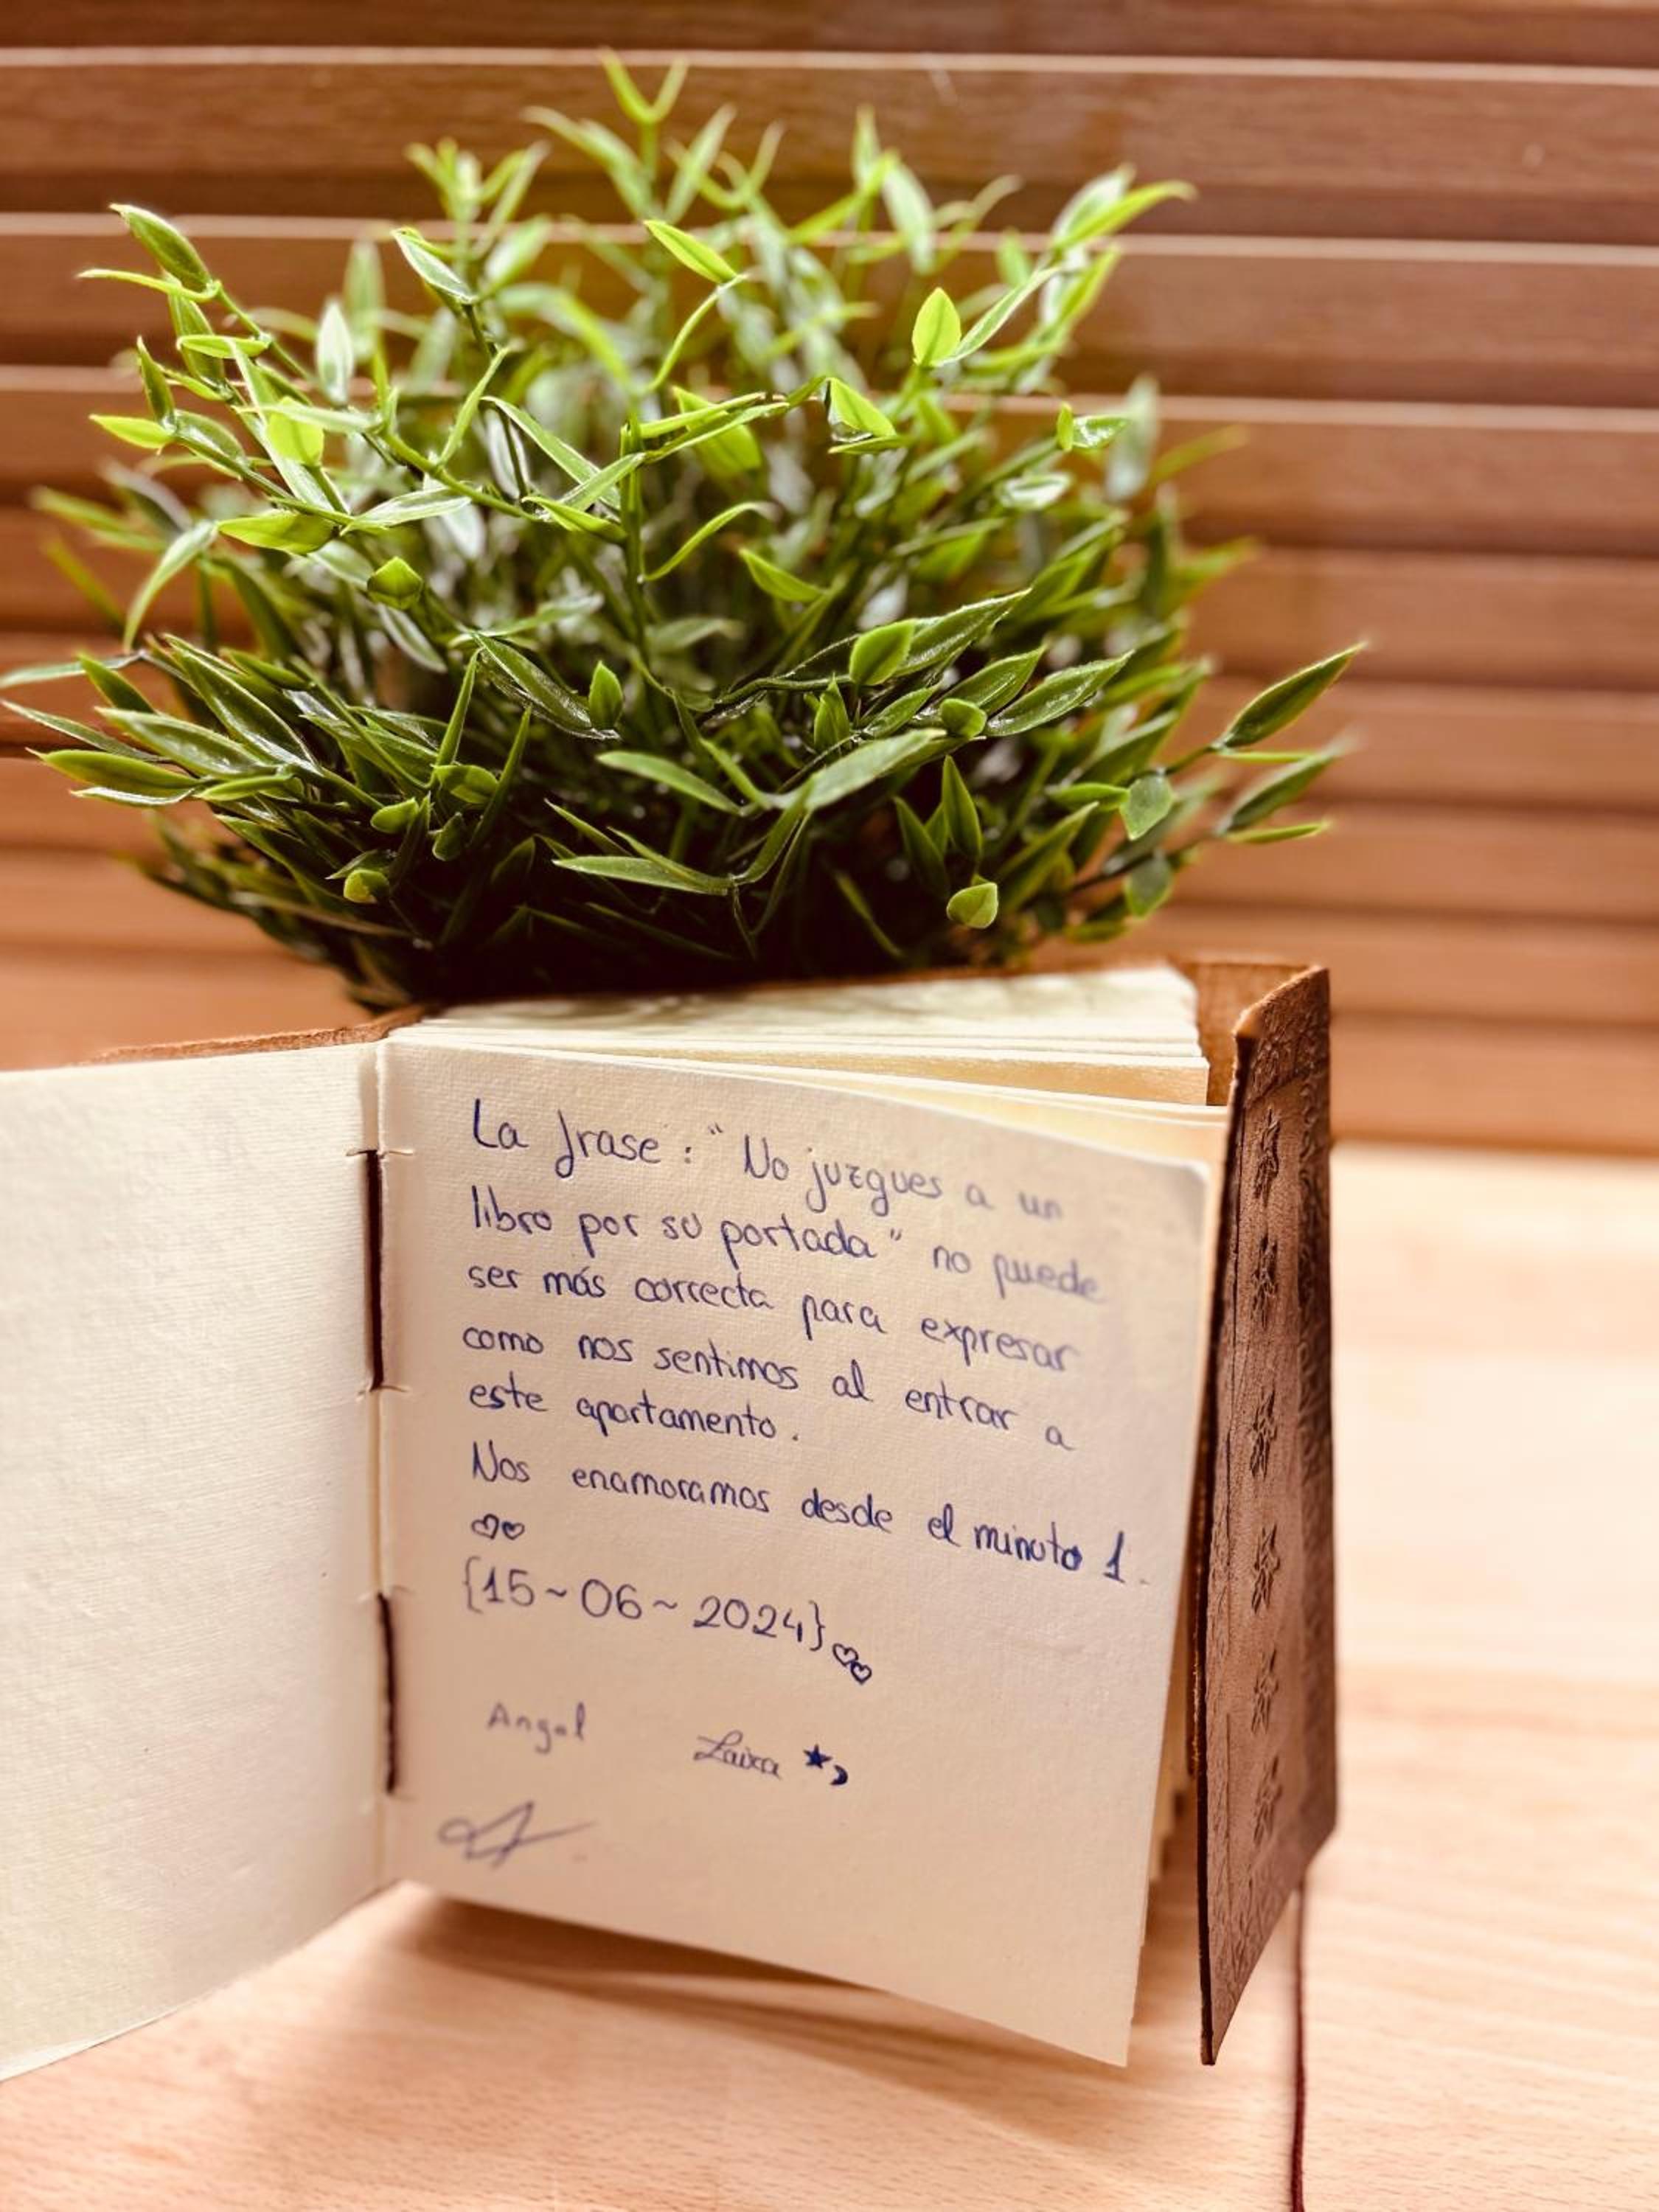 La frase: "No juzgues a un
libro por su portada" no puede
ser más correcta para expresar
como nos sentimos al entrar a
este apartamento.
Nos enamoramos desde el minuto 1.
♡♡
{15~06~2024}♡♡
Angel Laira ★☽